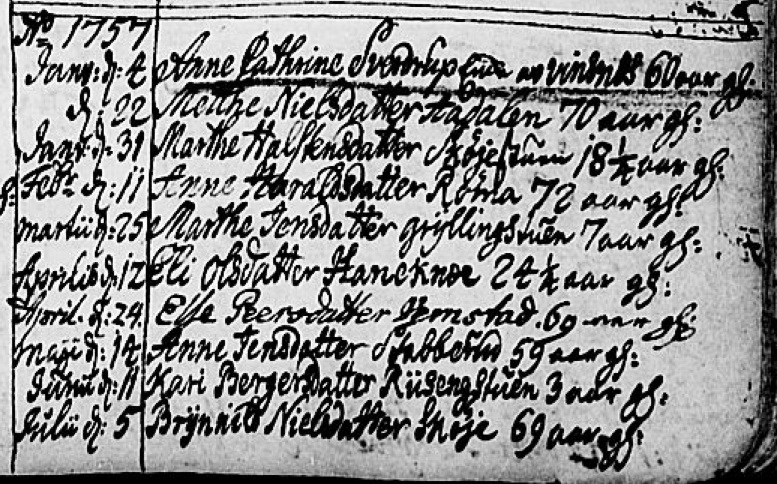 Ao 1757
Janv: d: 4 Anne Cathrine Sverdrup Enke av vindvits 60 aar gl:
d: 22 Merthe Nielsdatter Aadalen 70 aar gl:
Janv: d: 31 Marthe Halstensdatter Skøjestuen 18 ½ aar gl:
Febr: d: 11 Anne Haraldsdatter Røma 72 aar gl:
martii d: 25 Marthe Jensdatter gryllingstuen 7 aar gl:
Aprilis d: 12 Eli Olsdatter Haneknoe 24 ½ aar gl:
April. d: 24. Else Peersdatter 69 aar gl:
maji d: 14 Anne Jensdatter Stabberud 59 aar gl:
Junii d: 11 Kari Bergersdatter Rüsengstüen 3 aar gl:
Julii d: 5 Brÿnnild Nielsdatter Skøje 69 aar gl: